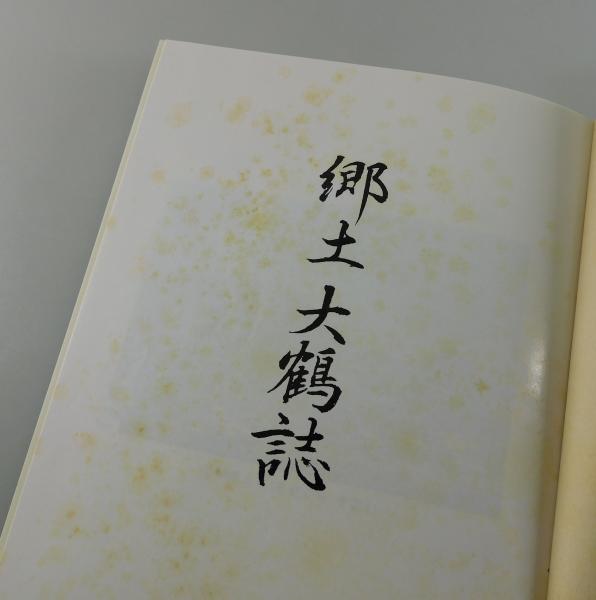 郷土大鶴誌